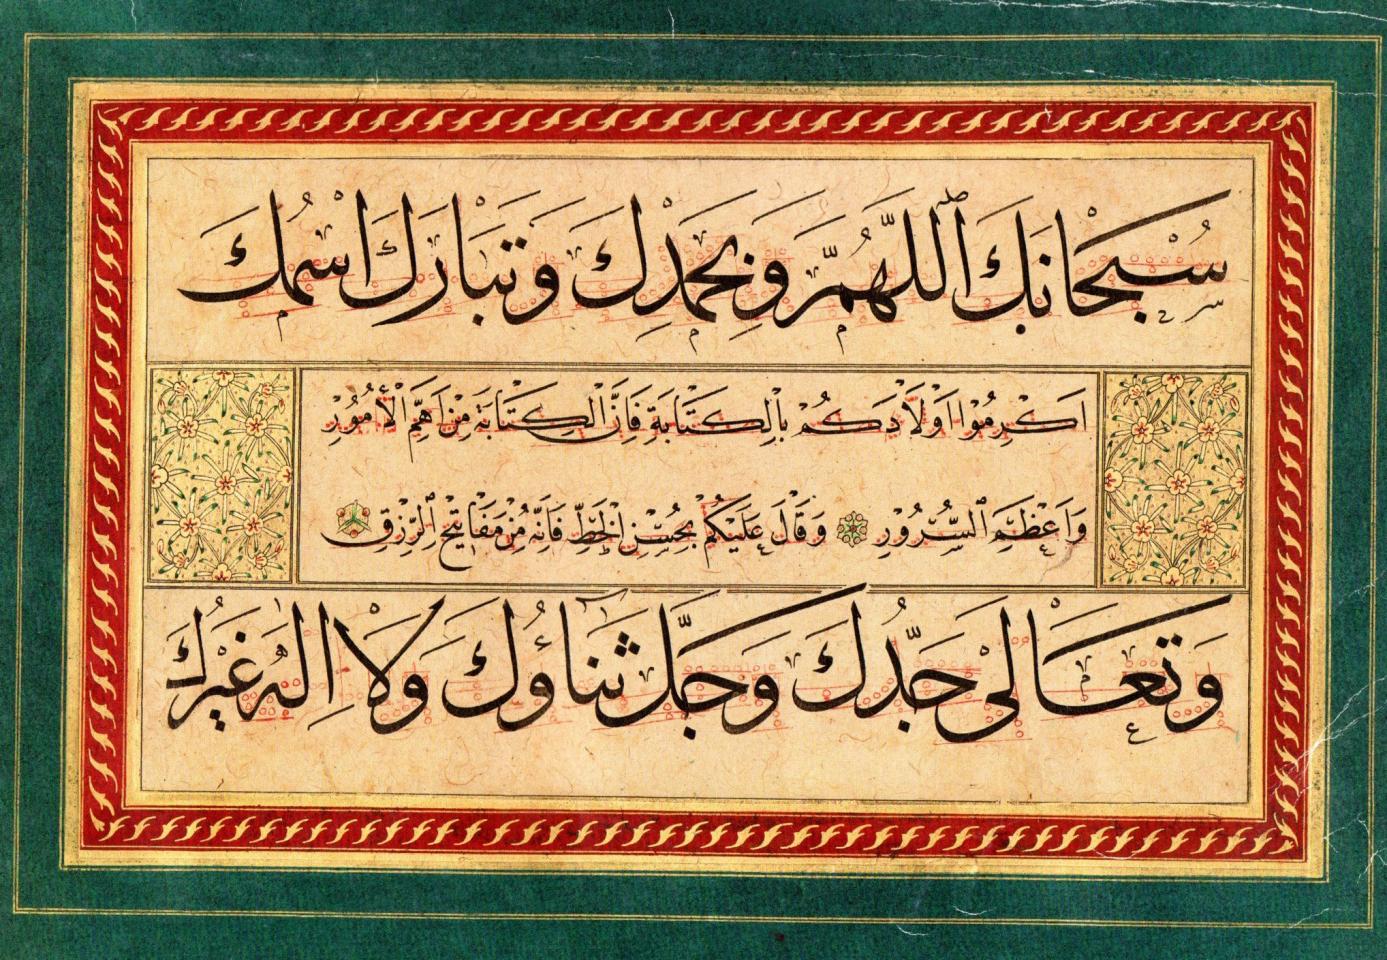 سُبْحَانَكَ ٱللَّهُمَّ وَبِحَمْدِكَ وَتَبَارَكَ اسْمُكَ
اَكْرِمُوْا اَوْلَادَكُمْ بِالْكِتَابَةِ فَاِنَّ الْكِتَابَةَ مِنْ اَهَمِّ الْأُمُوْرِ
وَاَعْظَمِ السُّرُوْرِ وَقَالَ عَلَيْكُمْ بِحُسْنِ الْخَطِّ فَاِنَّهُ مِنْ مَفَاتِيْحِ الرِّزْقِ
وَتَعَالٰى جَدُّكَ وَجَلَّ ثَنَاؤُكَ وَلَا اِلٰهَ غَيْرُكَ